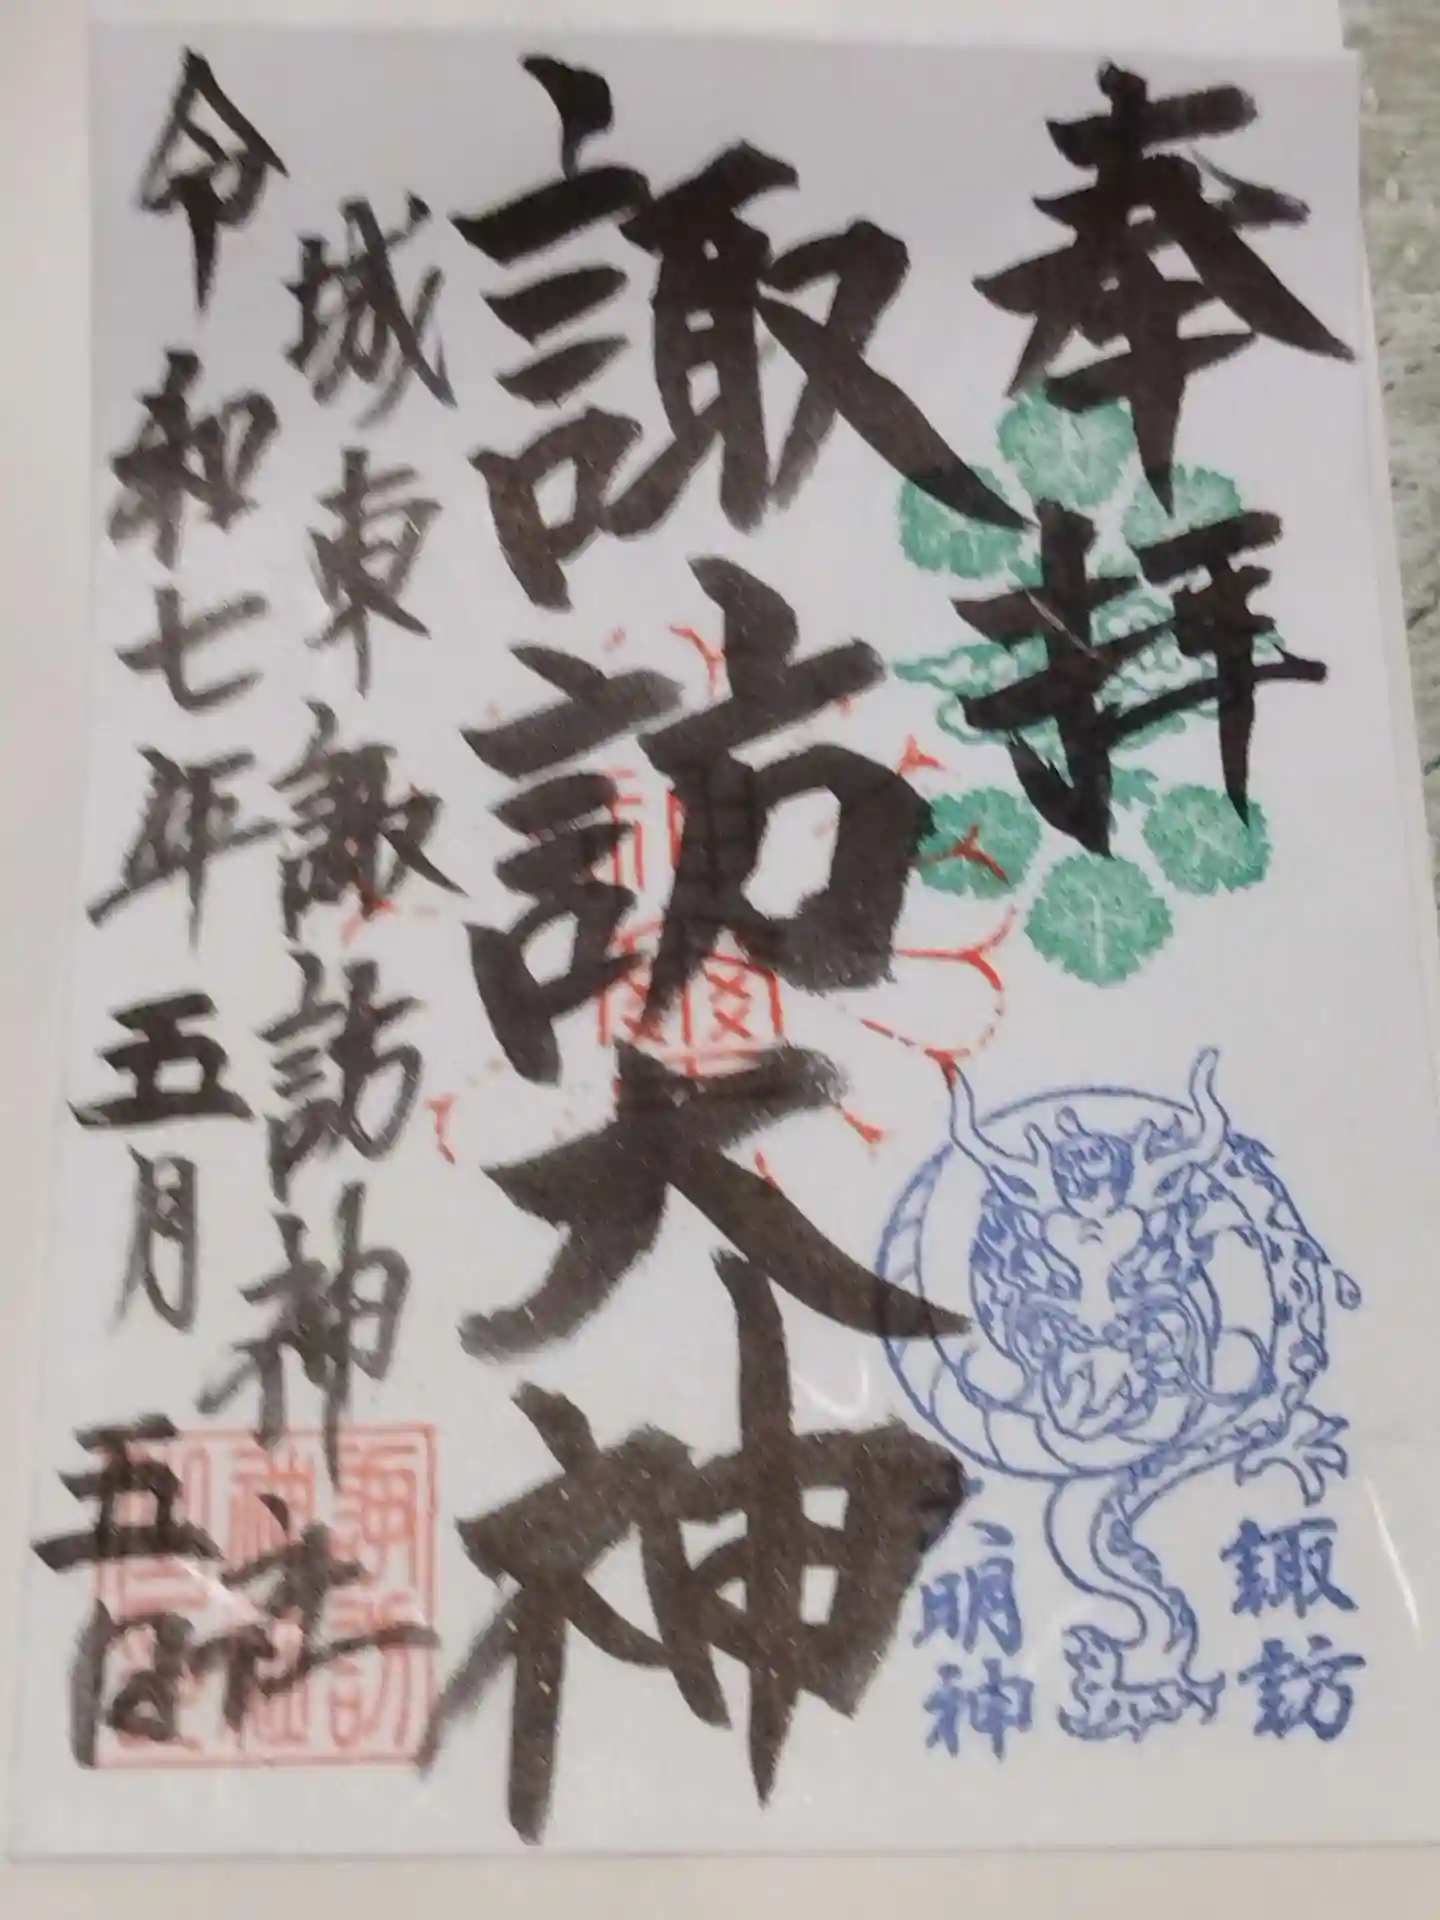 奉拝
諏訪
明神
諏訪大神
城東諏訪神社
令和七年五月五日